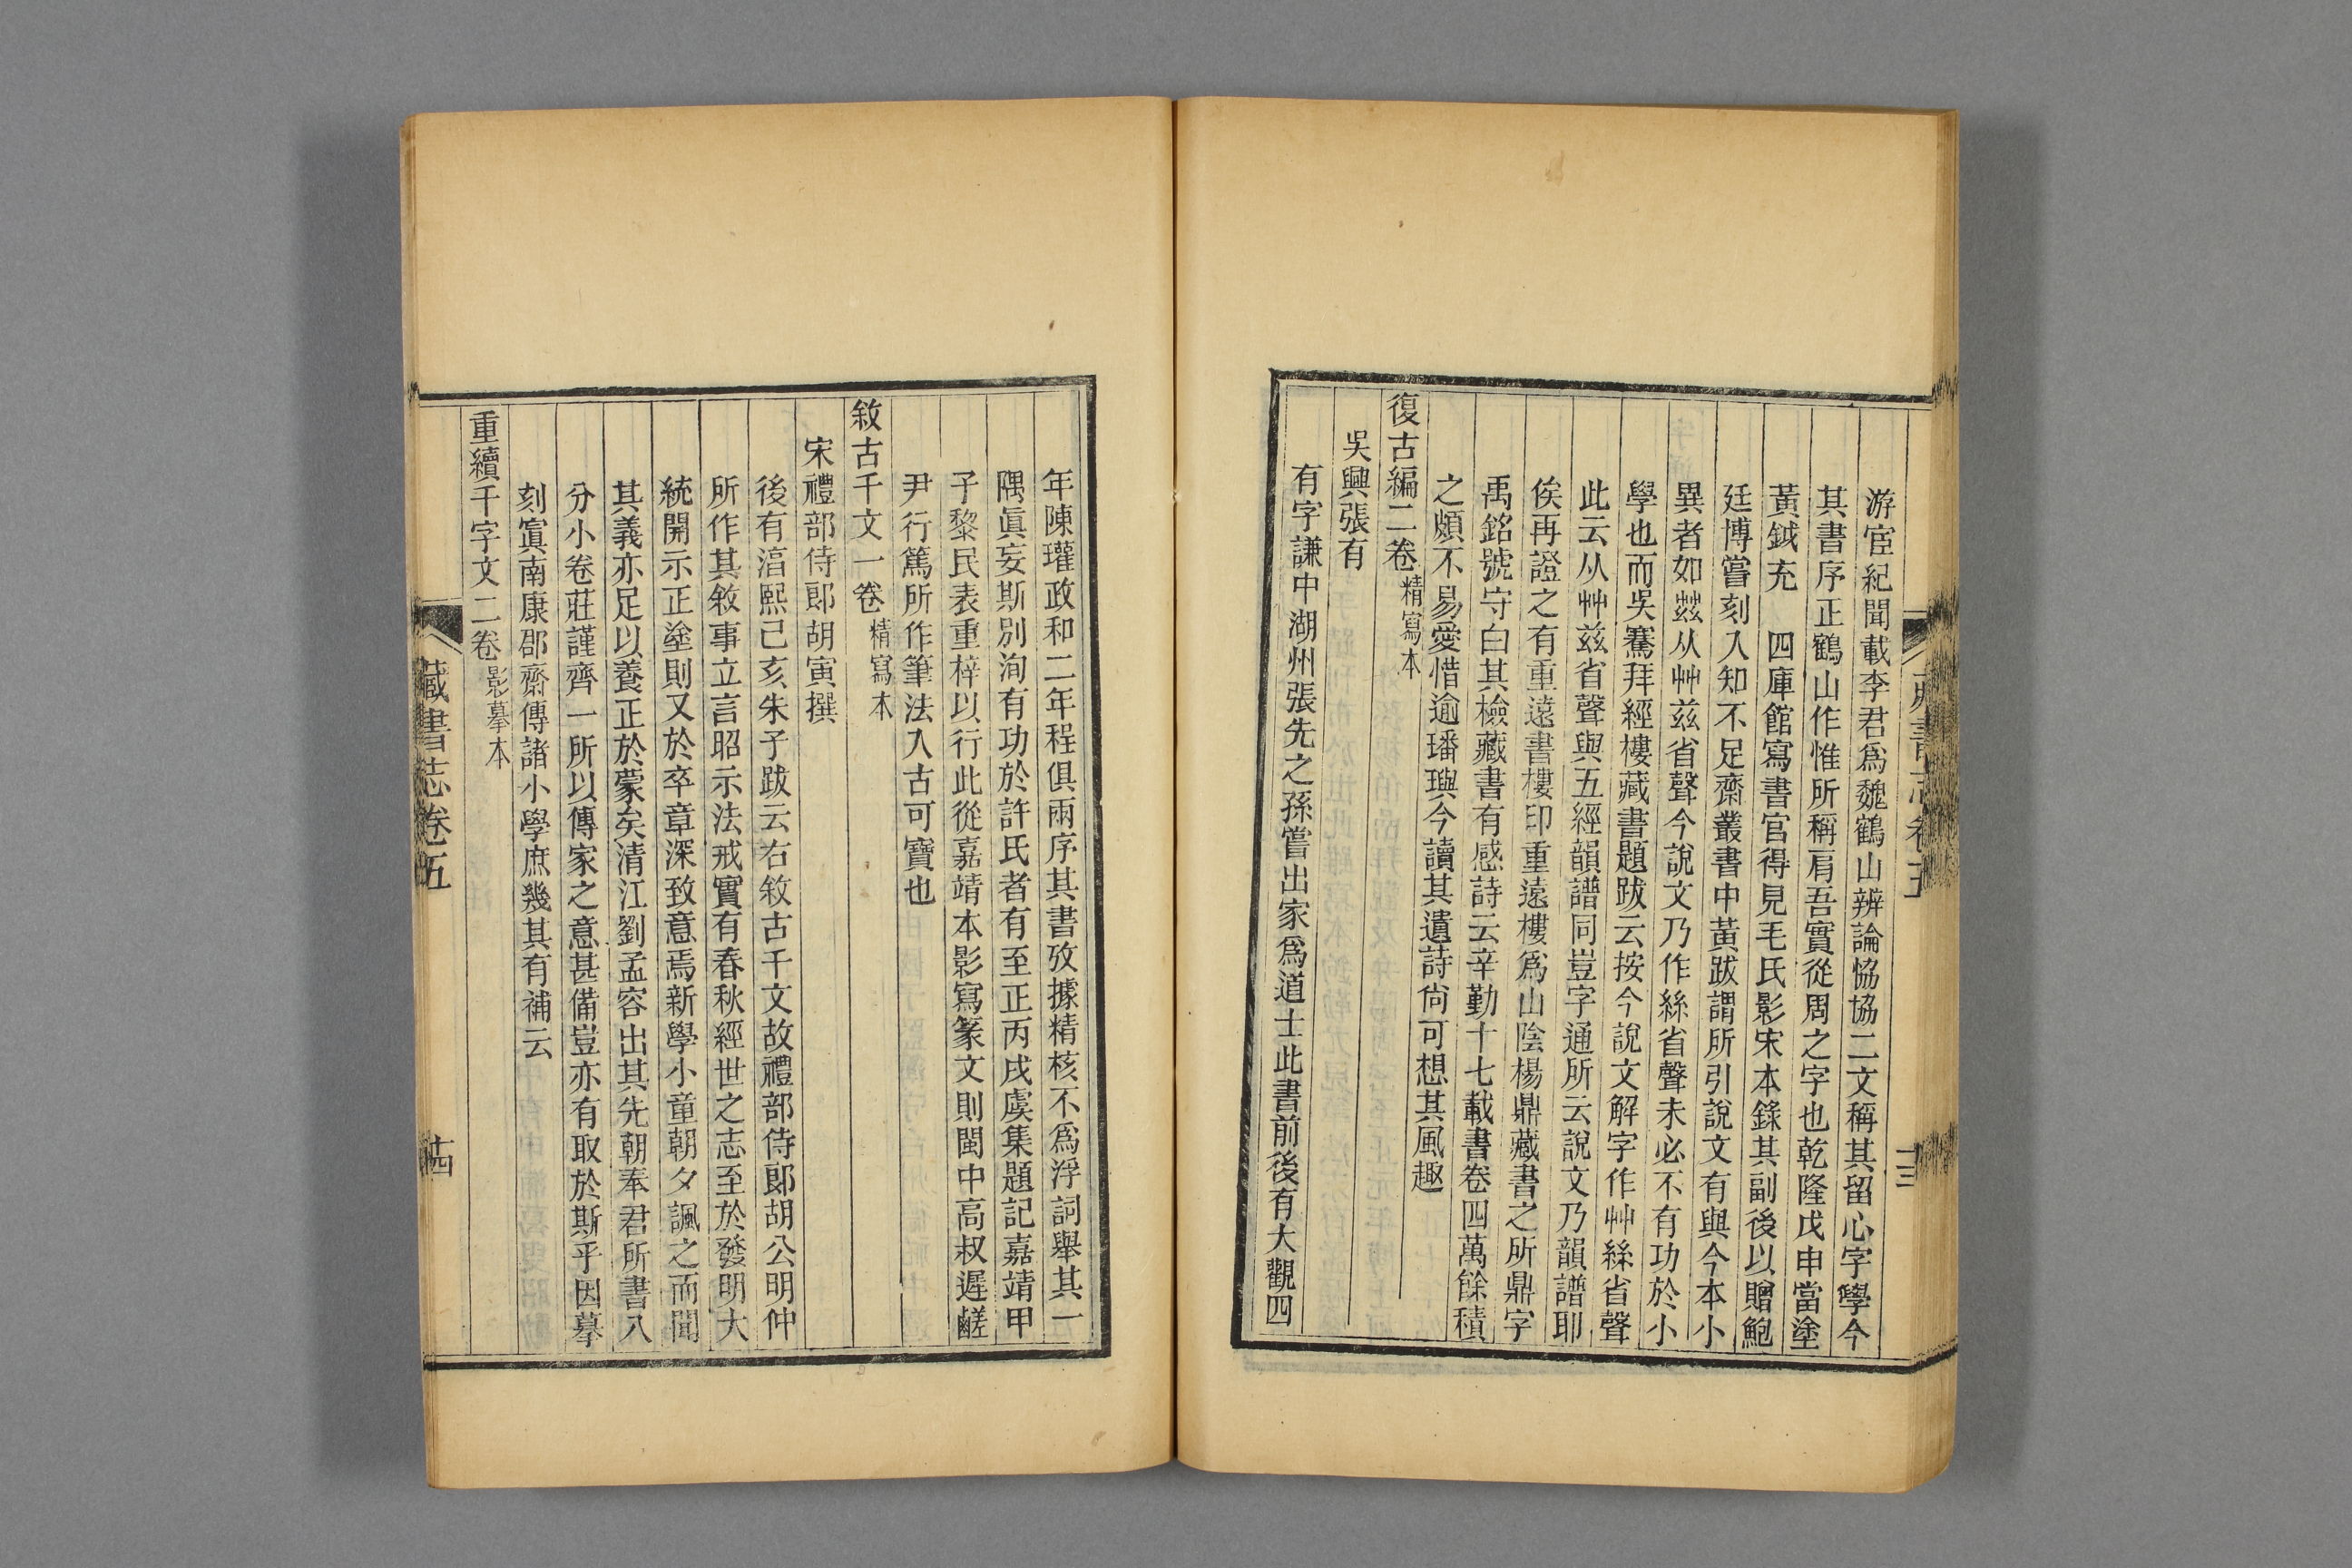 游宦紀聞載李君爲魏鶴山辨論恊協二文稱其留心字學今
其書序正鶴山作惟所稱肩吾實從周之字也乾隆戊申當塗
黃鉞充 四庫館寫書官得見毛氏影宋本錄其副後以贈鮑
廷博嘗刻入知不足齋叢書中黃跋謂所引說文有與今本小
異者如茲从艸兹省聲今說文乃作絲省聲未必不有功於小
學也而吳騫拜經樓藏書題跋云按今說文解字作艸絲省聲
此云从艸兹省聲與五經韻譜同豈字通所云說文乃韻譜耶
俟再證之有重遠書樓印重遠樓爲山陰楊鼎藏書之所鼎字
禹銘號守白其檢藏書有感詩云辛勤十七載書卷四萬餘積
之頗不易愛惜逾璠璵今讀其遺詩尙可想其風趣
復古編二卷精寫本
吳興張有
有字謙中湖州張先之孫嘗出家爲道士此書前後有大觀四
藏書志卷五
十三
年陳瓘政和二年程俱兩序其書攷據精核不爲浮詞舉其一
隅眞妄斯別洵有功於許氏者有至正丙戌虞集題記嘉靖甲
子黎民表重梓以行此從嘉靖本影寫篆文則閩中高叔遲鹺
尹行篤所作筆法入古可寶也
敘古千文一卷精寫本
宋禮部侍郞胡寅撰
後有湻熙己亥朱子跋云右敘古千文故禮部侍郞胡公明仲
所作其敘事立言昭示法戒實有春秋經世之志至於發明大
統開示正塗則又於卒章深致意焉新學小童朝夕諷之而聞
其義亦足以養正於蒙矣清江劉孟容出其先朝奉君所書八
分小卷莊謹齊一所以傳家之意甚備豈亦有取於斯乎因摹
刻寘南康郡齋傳諸小學庶幾其有補云
重續千字文二卷影摹本
藏書志卷五
十四